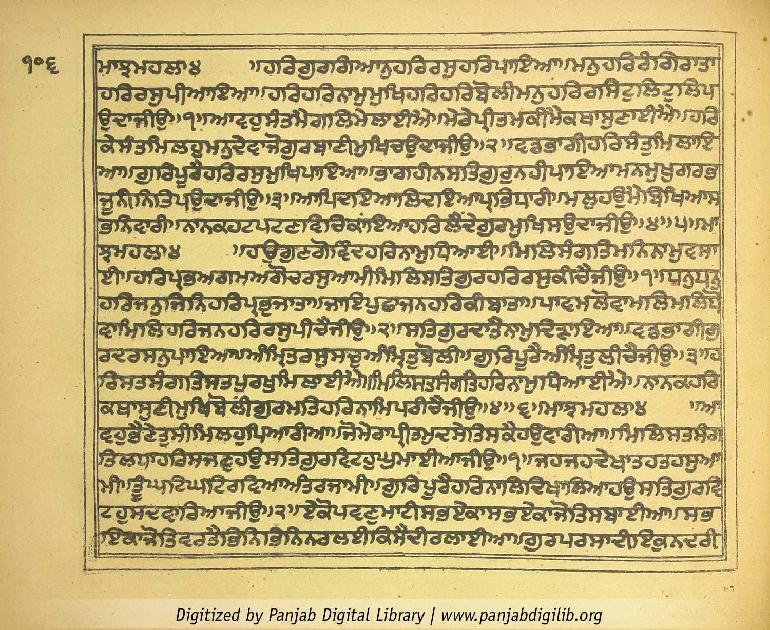 ੧੦੬
ਮਾਝਮਹਲਾ੪ ॥ਹਰਿਗੁਰਗਿਆਨੁਹਰਿਰਸੁਹਰਿਪਾਇਆ॥ਮਨੁਹਰਿਰੰਗਿਰਾਤਾ
ਹਰਿਰਸੁਪੀਆਇਆ॥ਹਰਿਹਰਿਨਾਮੁਮੁਖਿਹਰਿਹਰਿਬੋਲੀਮਨੁਹਰਿਰਸਿਟੁਲਿਟੁਲਿਪ
ਉਦਾਜੀਉ॥੧॥ਆਵਹੁਸੰਤਮੈਗਲਿਮੇਲਾਈਐ॥ਮੇਰੇਪ੍ਰੀਤਮਕੀਮੈਕਥਾਸੁਣਾਈਐ॥ਹਰਿ
ਕੇਸੰਤਮਿਲਹੁਮਨੁਦੇਵਾਜੋਗੁਰਬਾਣੀਮੁਖਿਚਉਦਾਜੀਉ॥੨॥ਵਡਭਾਗੀਹਰਿਸੰਤੁਮਿਲਾਇ
ਆ॥ਗੁਰਿਪੂਰੈਹਰਿਰਸੁਮੁਖਿਪਾਇਆ॥ਭਾਗਹੀਨਸਤਿਗੁਰੁਨਹੀਪਾਇਆਮਨਮੁਖੁਗਰਭ
ਜੂਨੀਨਿਤਿਪਉਦਾਜੀਉ॥੩॥ਆਪਿਦਇਆਲਿਦਇਆਪ੍ਰਭਿਧਾਰੀ॥ਮਲੁਹਉਮੈਬਿਖਿਆਸ
ਭਨਿਵਾਰੀ॥ਨਾਨਕਹਟਪਟਣਵਿਚਿਕਾਂਇਆਹਰਿਲੈਂਦੇਗੁਰਮੁਖਿਸਉਦਾਜੀਉ॥੪॥੫॥ਮਾ
ਝਮਹਲਾ੪ ॥ਹਉਗੁਣਗੋਵਿੰਦਹਰਿਨਾਮੁਧਿਆਈ॥ਮਿਲਿਸੰਗਤਿਮਨਿਨਾਮੁਵਸਾ
ਈ॥ਹਰਿਪ੍ਰਭਅਗਮਅਗੋਚਰਸੁਆਮੀਮਿਲਿਸਤਿਗੁਰਹਰਿਰਸੁਕੀਚੈਜੀਉ॥੧॥ਧਨੁਧਨੁ
ਹਰਿਜਨੁਜਿਨਿਹਰਿਪ੍ਰਭੁਜਾਤਾ॥ਜਾਇਪੁਛਾਜਨਹਰਿਕੀਬਾਤਾ॥ਪਾਵਮਲੋਵਾਮਲਿਮਲਿਧੋ
ਵਾਮਿਲਿਹਰਿਜਨਹਰਿਰਸੁਪੀਚੈਜੀਉ॥੨॥ਸਤਿਗੁਰਦਾਤੈਨਾਮੁਦਿੜਾਇਆ॥ਵਡਭਾਗੀਗੁ
ਰਦਰਸਨੁਪਾਇਆ॥ਅੰਮ੍ਰਿਤਰਸੁਸਚੁਅੰਮ੍ਰਿਤੁਬੋਲੀ॥ਗੁਰਿਪੂਰੈਅੰਮ੍ਰਿਤੁਲੀਚੈਜੀਉ॥੩॥ਹ
ਰਿਸਤਸੰਗਤਿਸਤਪੁਰਖੁਮਿਲਾਈਐ॥ਮਿਲਿਸਤਸੰਗਤਿਹਰਿਨਾਮੁਧਿਆਈਐ॥ਨਾਨਕਹਰਿ
ਕਥਾਸੁਣੀਮੁਖਿਬੋਲੀਗੁਰਮਤਿਹਰਿਨਾਮਿਪਰੀਚੈਜੀਉ॥੪॥੬॥ਮਾਝਮਹਲਾ੪ ॥ਆ
ਵਹੁਭੈਣੇਤੁਸੀਮਿਲਹੁਪਿਆਰੀਆ॥ਜੋਮੇਰਾਪ੍ਰੀਤਮੁਦਸੇਤਿਸਕੈਹਉਵਾਰੀਆ॥ਮਿਲਿਸਤਸੰਗ
ਤਿਲਧਾਹਰਿਸਜਣੁਹਉਸਤਿਗੁਰਵਿਟਹੁਘੁਮਾਈਆਜੀਉ॥੧॥ਜਹਜਹਦੇਖਾਤਹਤਹਸੁਆ
ਮੀ॥ਤੂਘਟਿਘਟਿਰਵਿਆਅੰਤਰਜਾਮੀ॥ਗੁਰਿਪੂਰੈਹਰਿਨਾਲਿਦਿਖਾਲਿਆਹਉਸਤਿਗੁਰਵਿ
ਟਹੁਸਦਵਾਰਿਆਜੀਉ॥੨॥ਏਕੋਪਵਣੁਮਾਟੀਸਭਏਕਾਸਭਏਕਾਜੋਤਿਸਬਾਈਆ॥ਸਭ
ਇਕਾਜੋਤਿਵਰਤੈਭਿਨਿਭਿਨਿਨਰਲਈਕਿਸੈਦੀਰਲਾਈਆ॥ਗੁਰਪਰਸਾਦੀਇਕੁਨਦਰੀ
Digitized by Panjab Digital Library | www.panjabdigilib.org